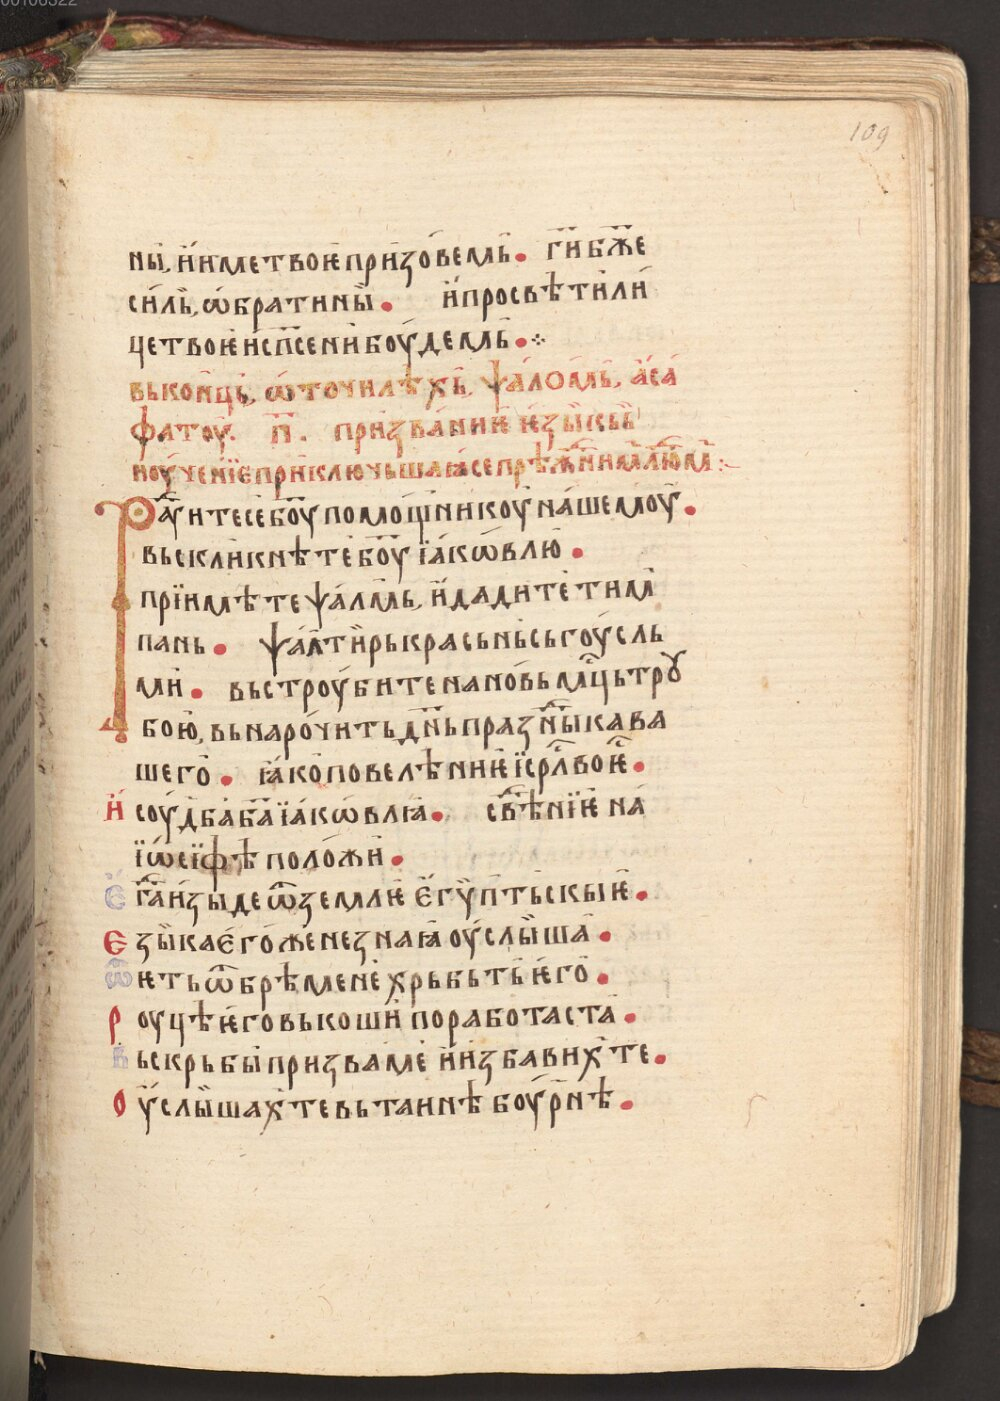 00106322
109
ны, и҆ и҆ме твоѥ приꙁовемь. г҃и бж҃е
силь, ѡ҆брати ны. и҆ просвѣти ли
це твоѥ и҆ сп҃сени боудемь.
вь коньць, ѡ҆ точилѣхь, ѱаломь, а҆са
фатоу. п҃. приꙁваниѥ ѥꙁыкьь
и оученїе приключьшаꙗ се прѣжⷣнимь людⷨемь
Раⷣуите се б҃оу помощникоу нашемоу.
вьскликнѣте б҃оу ї҆а҆кѡвлю.
прїимѣте ѱалмь, и҆ дадите тим
пань. ѱалтирь красьнь сь гоусль
ми. вьстроубите на новь мⷭ҇ць трꙋ
бою, вь нарочить дн҃ь праꙁⷣныка ва
шего. ꙗ҆ко повелѣниѥ ї҆ꙁрⷭ҇лво ѥⷭ҇.
И҆ соудба б҃а ї҆а҆кѡвлꙗ. свⷣѣнїѥ на
ї҆ѡ҆сїфѣ положи.
Е҆гⷣа иꙁыде ѿ ꙁемлѥ е҆гѷптьскыѥ.
Еꙁыка е҆гоже не ꙁнаꙗ оуслыша.
Ѿѥть ѿ брѣмене хрьбьть ѥго.
Роуцѣ ѥго вь коши поработаста.
Вь скрьбы приꙁва ме и҆ иꙁбавих те.
Оуслышах те вь таинѣ боурнѣ.